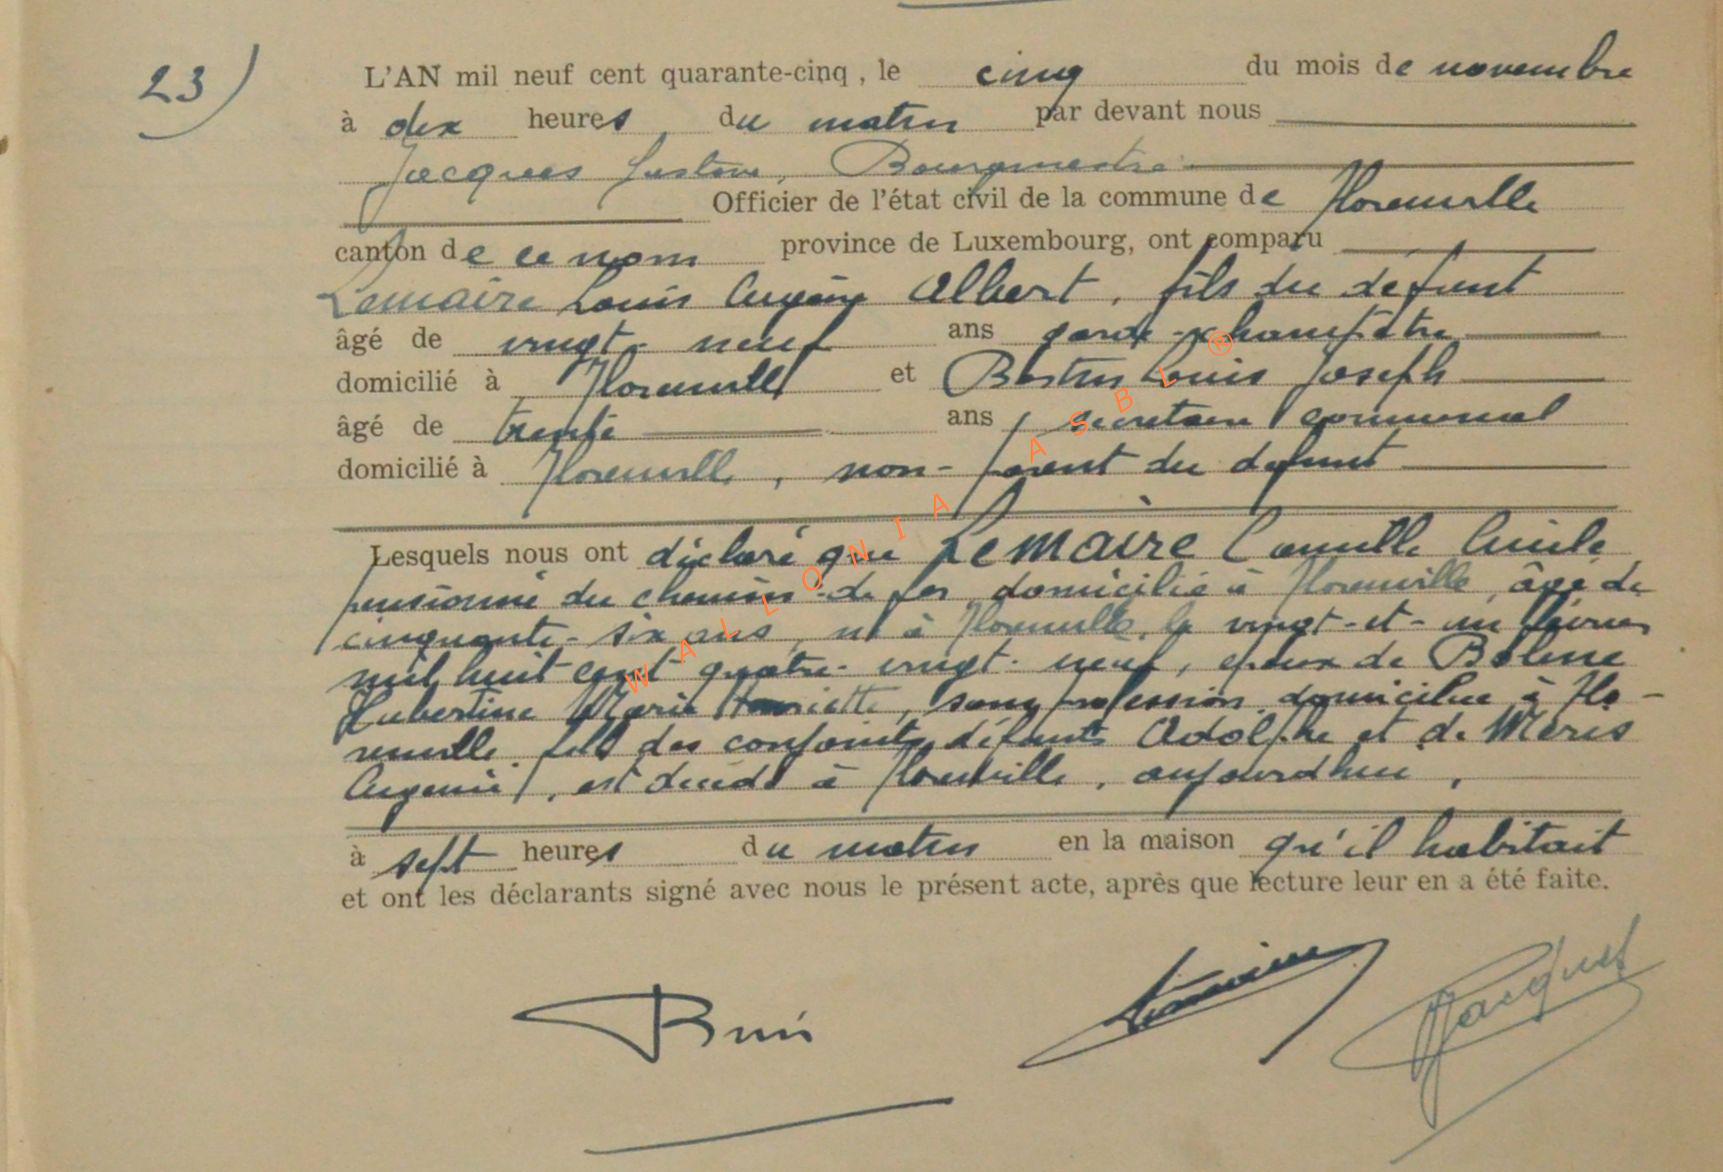 23)
L'AN mil neuf cent quarante-cinq, le cinq du mois de novembre
à dix heures du matin par devant nous
Jacques Gustave, Bourgmestre
Officier de l'état civil de la commune de Florenville
canton de ce nom province de Luxembourg, ont comparu
Lemaire Louis Eugène Albert, fils du défunt
âgé de vingt-neuf ans garde-champêtre
domicilié à Florenville et Louis Joseph
âgé de trente ans, secrétaire communal
domicilié à Florenville, non-parent du défunt
Lesquels nous ont déclaré que Lemaire Camille
pensionné du chemin-de fer domicilié à Florenville, âgé de
cinquante-six ans, né à Florenville, le vingt-et-un février
mil huit cent quatre-vingt-neuf, époux de
Hubertine Marie Henriette, sans profession, domiciliée à Flo-
renville, fils des conjoints défunts Adolphe et de
Eugénie, est décédé à Florenville, aujourd'hui,
à sept heures du matin en la maison qu'il habitait
et ont les déclarants signé avec nous le présent acte, après que lecture leur en a été faite.
Lemaire
Jacques
WALLONIA ASBL ®